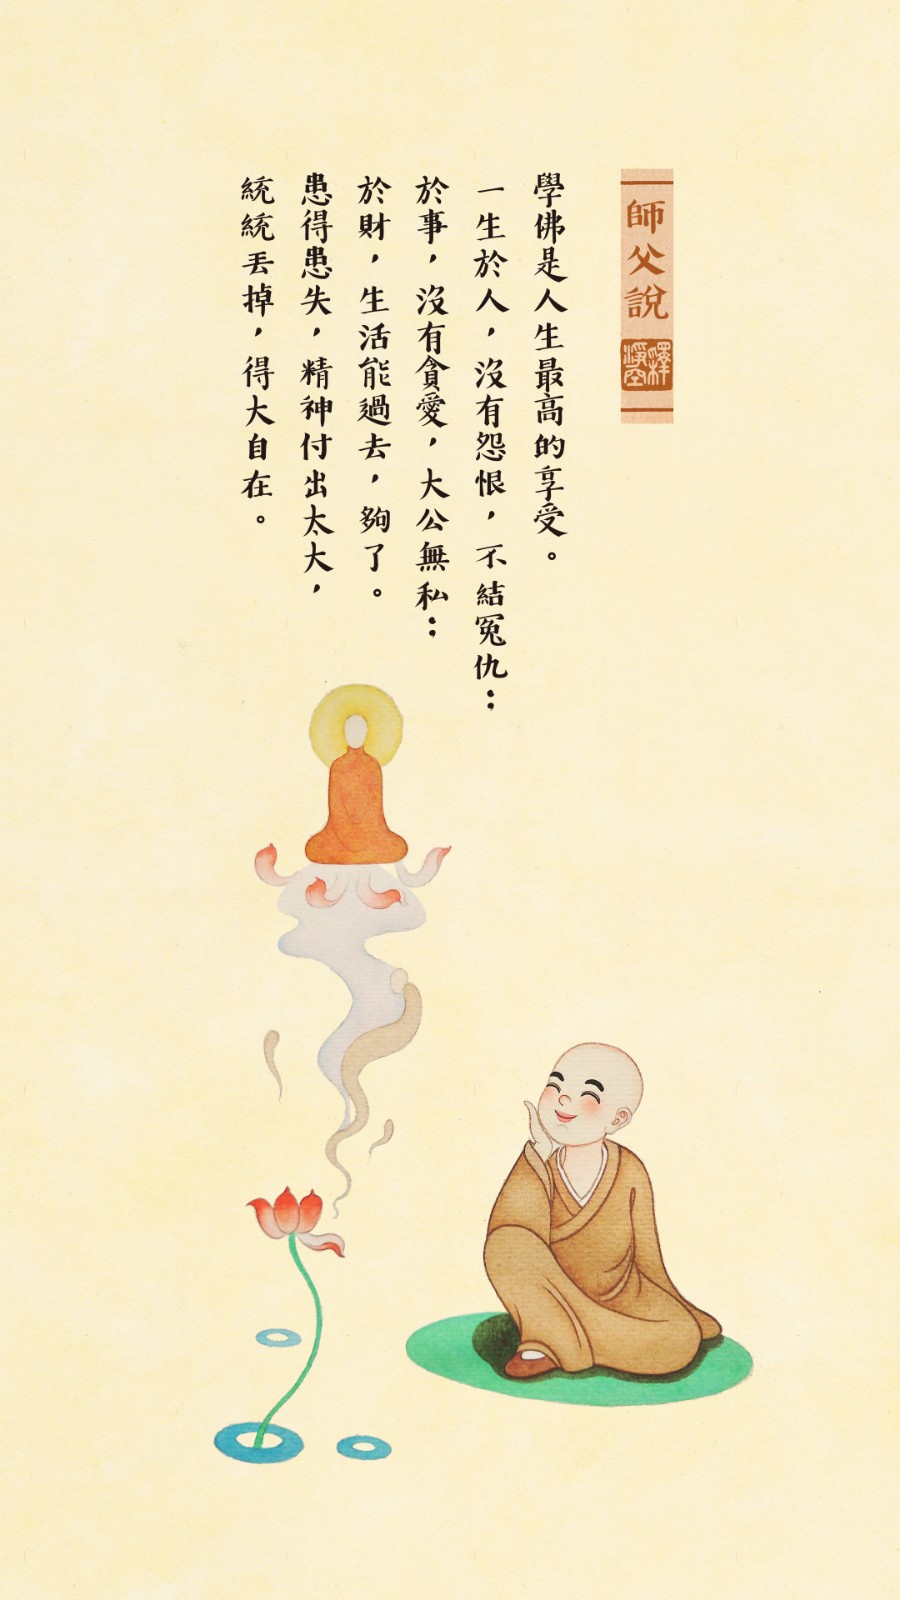 師父說
釋淨空
學佛是人生最高的享受。
一生於人，沒有怨恨，不結冤仇；
於事，沒有貪愛，大公無私；
於財，生活能過去，夠了。
患得患失，精神付出太大，
統統丟掉，得大自在。